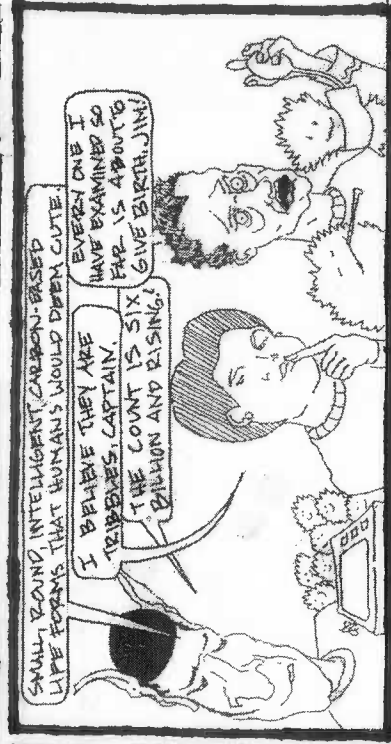 SMALL, ROUND, INTELLIGENT, CARBON-BASED
LIFE FORMS THAT HUMANS WOULD DEEM CUTE.
I BELIEVE THEY ARE
TRIBBLES, CAPTAIN.
THE COUNT IS SIX
BILLION AND RISING!
EVERY ONE I
HAVE EXAMINED SO
FAR IS ABOUT TO
GIVE BIRTH, JIM!